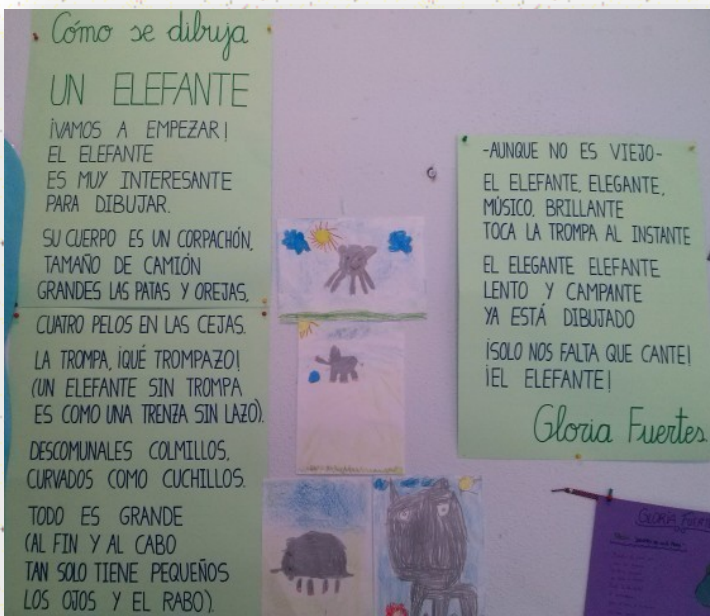 Cómo se dibuja
UN ELEFANTE
¡VAMOS A EMPEZAR!
EL ELEFANTE
ES MUY INTERESANTE
PARA DIBUJAR.
SU CUERPO ES UN CORPACHÓN,
TAMAÑO DE CAMIÓN
GRANDES LAS PATAS Y OREJAS,
CUATRO PELOS EN LAS CEJAS.
LA TROMPA, ¡QUÉ TROMPAZO!
(UN ELEFANTE SIN TROMPA
ES COMO UNA TRENZA SIN LAZO).
DESCOMUNALES COLMILLOS,
CURVADOS COMO CUCHILLOS.
TODO ES GRANDE
(AL FIN Y AL CABO
TAN SOLO TIENE PEQUEÑOS
LOS OJOS Y EL RABO).
-AUNQUE NO ES VIEJO-
EL ELEFANTE, ELEGANTE,
MÚSICO, BRILLANTE
TOCA LA TROMPA AL INSTANTE
EL ELEGANTE ELEFANTE
LENTO Y CAMPANTE
YA ESTÁ DIBUJADO
¡SOLO NOS FALTA QUE CANTE!
¡EL ELEFANTE!
Gloria Fuertes
GLORIA